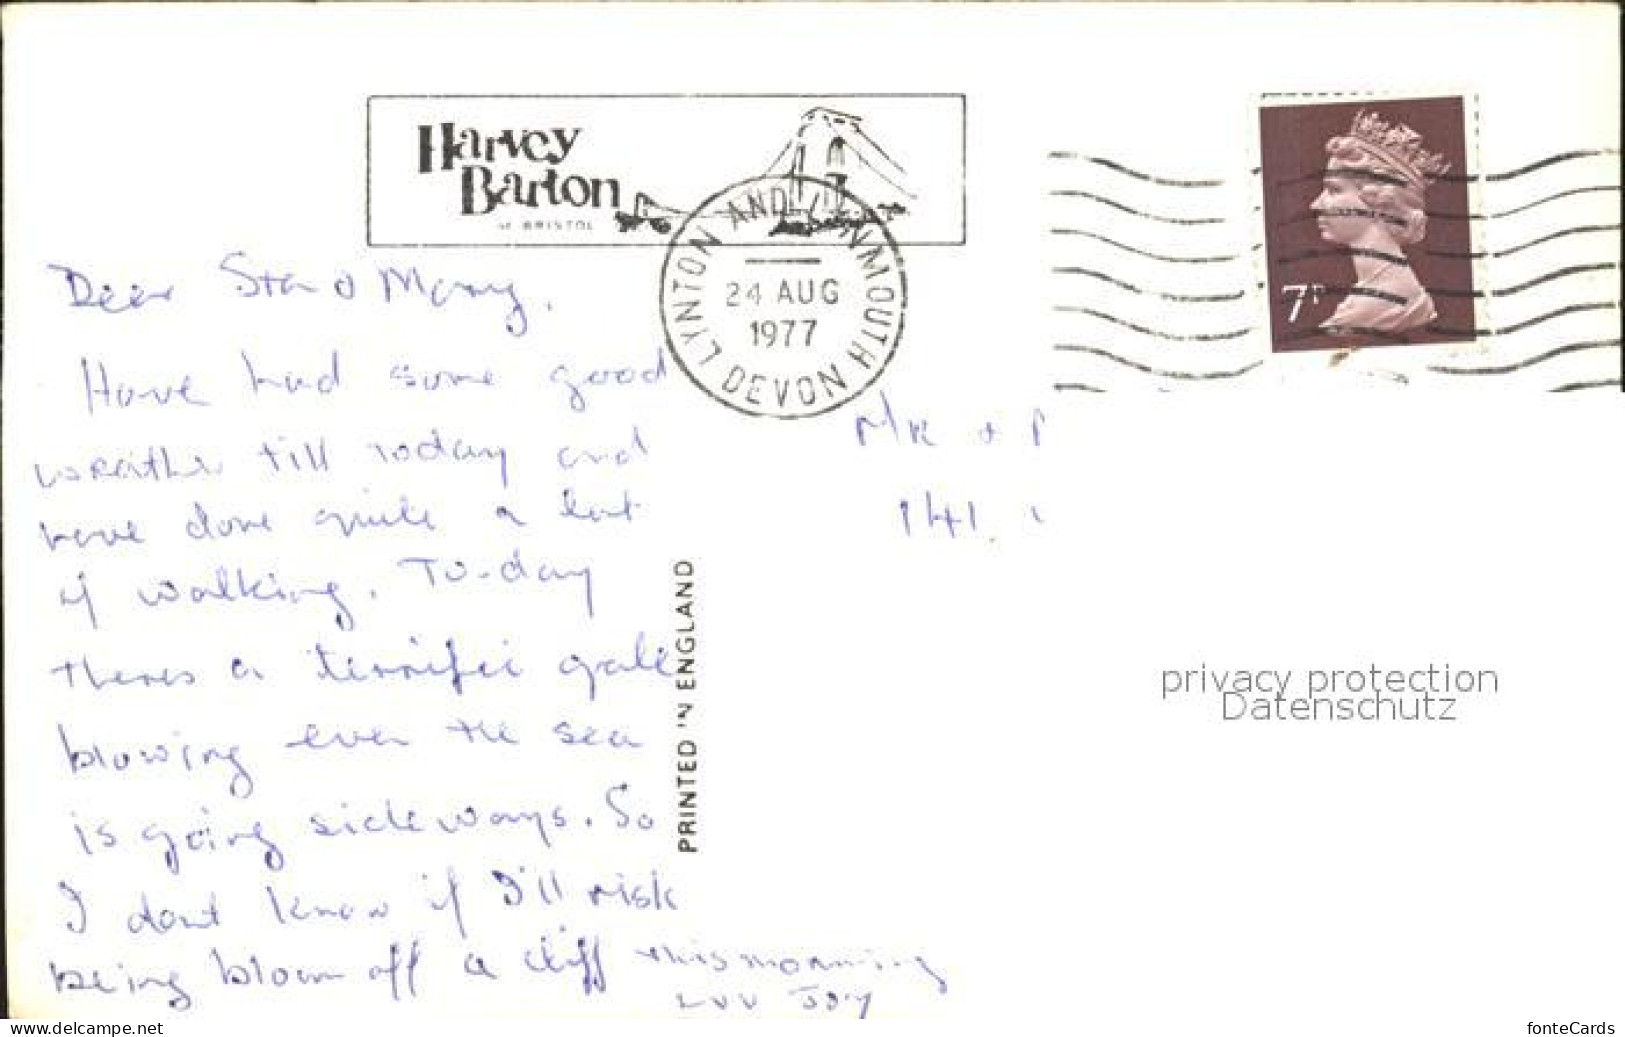 Harvey
Barton
OF BRISTOL
LYNTON AND LYNMOUTH
24 AUG
1977
DEVON
7P
Dear Stan & Mary,
Have had some good
weather till today and
have done quite a lot
of walking. To-day
theres a terrific gale
blowing even the sea
is going sideways. So
I dont know if I'll risk
being blown off a cliff this morning
Luv Joy
MR +
141
PRINTED IN ENGLAND
privacy protection
Datenschutz
www.delcampe.net
fonteCards